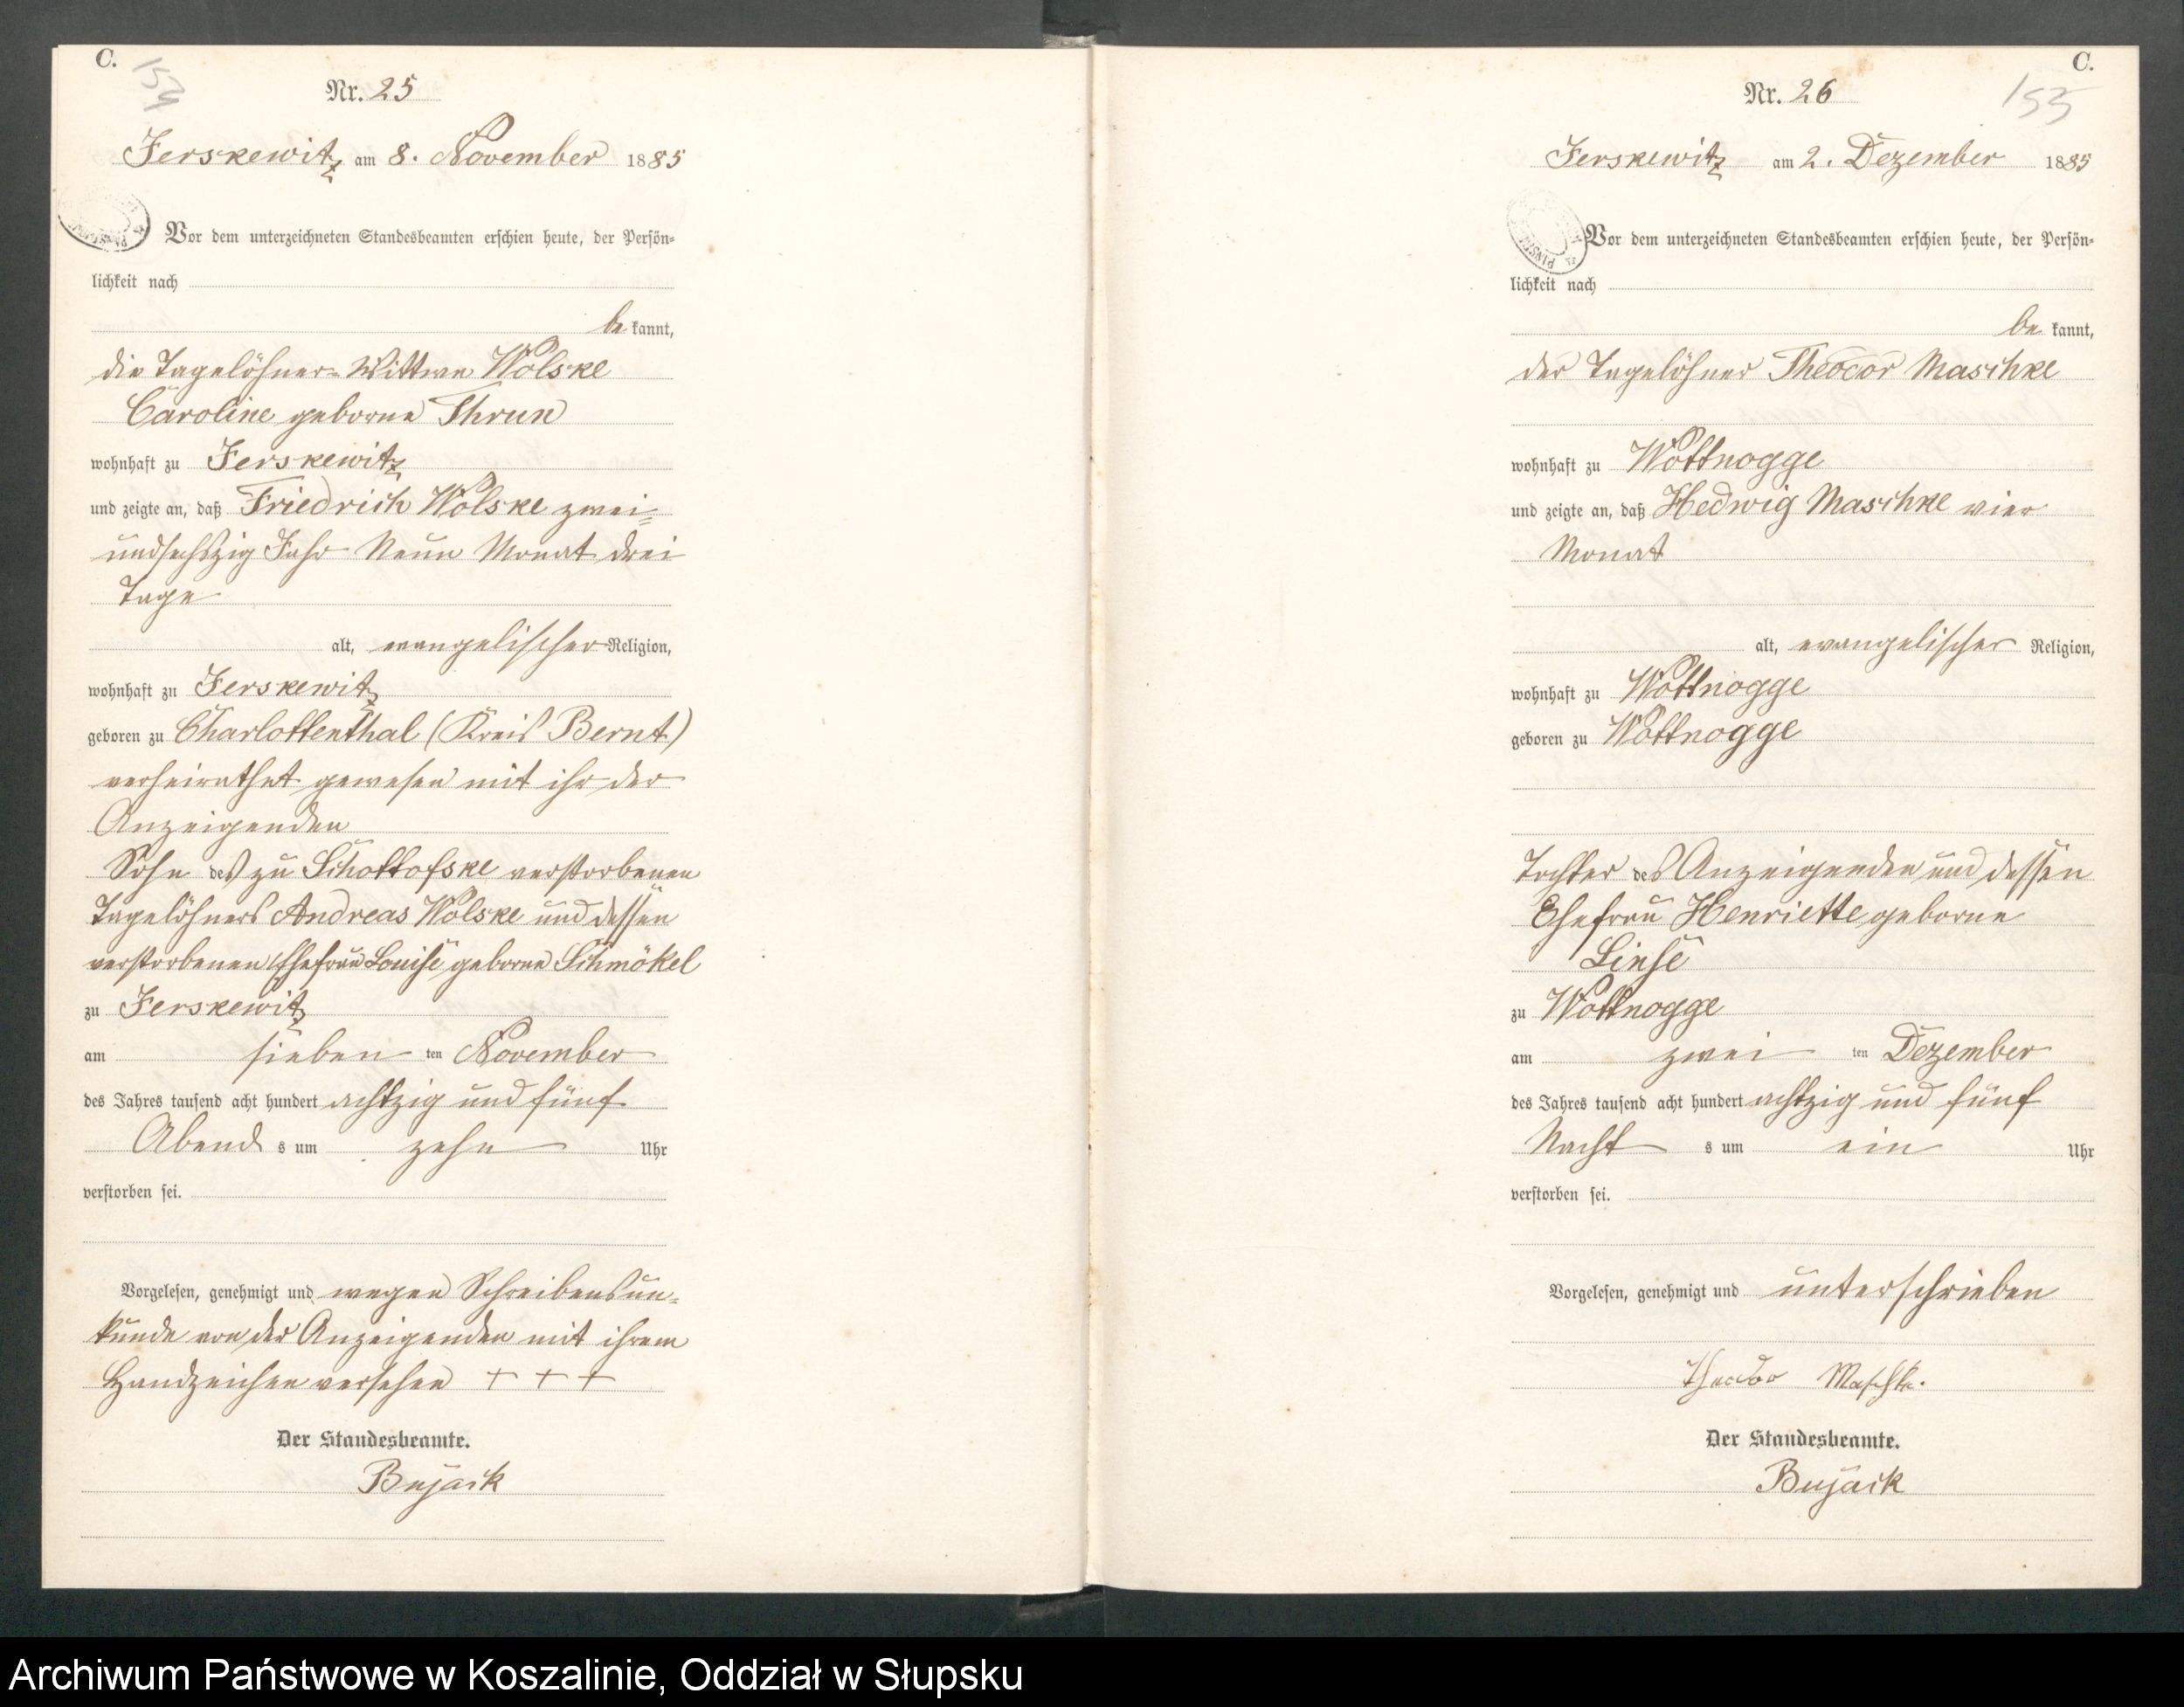 C.
154
Nr. 25
Ferskewitz am 8. November 1885
Vor dem unterzeichneten Standesbeamten erschien heute, der Persön-
lichkeit nach
be kannt,
die Tagelöhner-Wittwe Wolske
Caroline geborne Thrun
wohnhaft zu Ferskewitz
und zeigte an, daß Friedrich Wolske zwei-
undsechszig Jahr Neun Monat drei
Tage
alt, evangelischer Religion,
wohnhaft zu Ferskewitz
geboren zu Charlottenthal (Kreis Bernt)
verheirathet gewesen mit ihr der
Anzeigenden
Sohn des zu Schottofske verstorbenen
Tagelöhners Andreas Wolske und dessen
verstorbenen Ehefrau Louise geborne Schmökel
zu Ferskewitz
am sieben ten November
des Jahres tausend acht hundert achtzig und fünf
Abend s um zehn Uhr
verstorben sei.
Vorgelesen, genehmigt und wegen Schreibensun-
kunde von der Anzeigenden mit ihrem
Handzeichen versehen + + +
Der Standesbeamte.
Bujack
C.
155
Nr. 26
Ferskewitz am 2. Dezember 1885
Vor dem unterzeichneten Standesbeamten erschien heute, der Persön-
lichkeit nach
be kannt,
der Tagelöhner Theodor Maschke
wohnhaft zu Wottnogge
und zeigte an, daß Hedwig Maschke vier
Monat
alt, evangelischer Religion,
wohnhaft zu Wottnogge
geboren zu Wottnogge
Tochter des Anzeigenden und dessen
Ehefrau Henriette geborne
Linse
zu Wottnogge
am zwei ten Dezember
des Jahres tausend acht hundert achtzig und fünf
Nacht s um ein Uhr
verstorben sei.
Vorgelesen, genehmigt und unterschrieben
Theodor Maschke.
Der Standesbeamte.
Bujack
Archiwum Państwowe w Koszalinie, Oddział w Słupsku